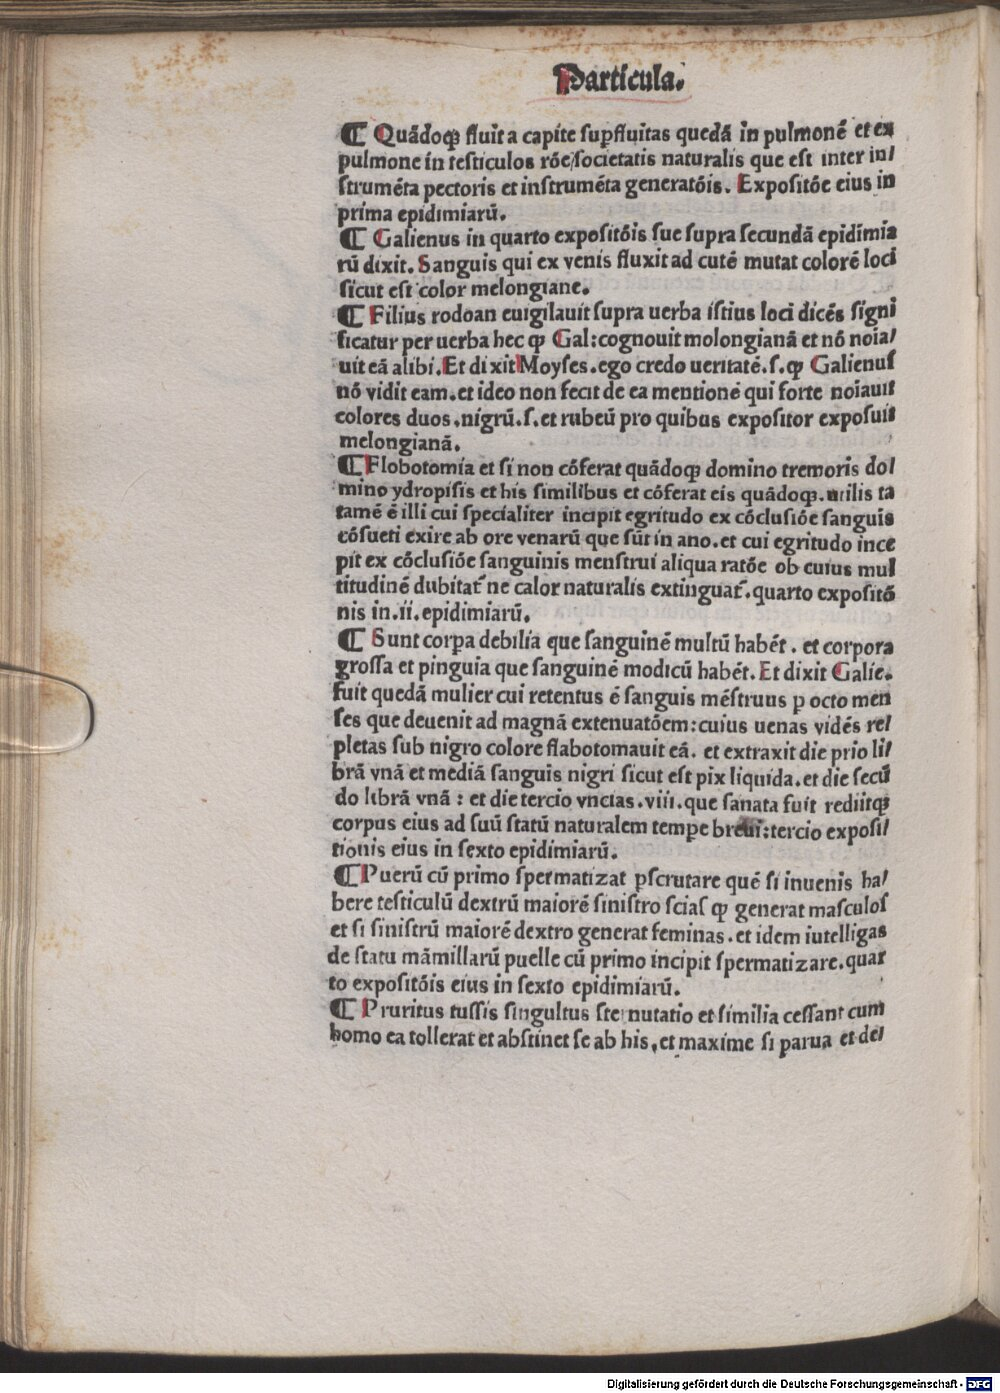 Particula.
¶ Quãdoqꝫ fluit a capite supfluitas quedã in pulmonẽ et ex
pulmone in testiculos rõe societatis naturalis que est inter in/
strumẽta pectoris et instrumẽta generatõis. Expositõe eius in
prima epidimiarũ.
¶ Galienus in quarto expositõis sue supra secundã epidimia
rũ dixit. Sanguis qui ex venis fluxit ad cutẽ mutat colorẽ loci
sicut est color melongiane.
¶ Filius rodoan euigilauit supra uerba istius loci dicẽs signi
ficatur per uerba hec ꝙ Gal: cognouit molongianã et nõ noia/
uit eã alibi. Et dixit Moyses. ego credo ueritatẽ. s. ꝙ Galienus
nõ vidit eam. et ideo non fecit de ea mentionẽ qui forte noiauit
colores duos. nigrũ. s. et rubeũ pro quibus expositor exposuit
melongianã.
¶ Flobotomia et si non cõferat quãdoqꝫ domino tremoris do/
mino ydropisis et his similibus et cõferat eis quãdoqꝫ. utilis ta
tamẽ ẽ illi cui specialiter incipit egritudo ex cõclusiõe sanguis
cõsueti exire ab ore venarũ que sũt in ano. et cui egritudo ince
pit ex cõclusiõe sanguinis menstrui aliqua ratõe ob cuius mul
titudinẽ dubitat᷑ ne calor naturalis extinguat᷑. quarto expositõ
nis in. ii. epidimiarũ.
¶ Sunt corpa debilia que sanguinẽ multũ habẽt. et corpora
grossa et pinguia que sanguinẽ modicũ habẽt. Et dixit Galie.
fuit quedã mulier cui retentus ẽ sanguis mẽstruus p octo men
ses que deuenit ad magnã extenuatõem: cuius uenas vidẽs re/
pletas sub nigro colore flabotomauit eã. et extraxit die prio li/
brã vnã et mediã sanguis nigri sicut est pix liquida. et die secũ
do librã vnã: et die tercio vncias. viii. que sanata fuit rediitqꝫ
corpus eius ad suũ statũ naturalem tempe breui: tercio exposi/
tionis eius in sexto epidimiarũ.
¶ Puerũ cũ primo spermatizat pscrutare quẽ si inuenis ha/
bere testiculũ dextrũ maiorẽ sinistro scias ꝙ generat masculos
et si sinistrũ maiorẽ dextro generat feminas. et idem iutelligas
de statu mãmillarũ puelle cũ primo incipit spermatizare. quar
to expositõis eius in sexto epidimiarũ.
¶ Pruritus tussis singultus sternutatio et similia cessant cum
homo ea tollerat et abstinet se ab his, et maxime si parua et de/
Digitalisierung gefördert durch die Deutsche Forschungsgemeinschaft - DFG